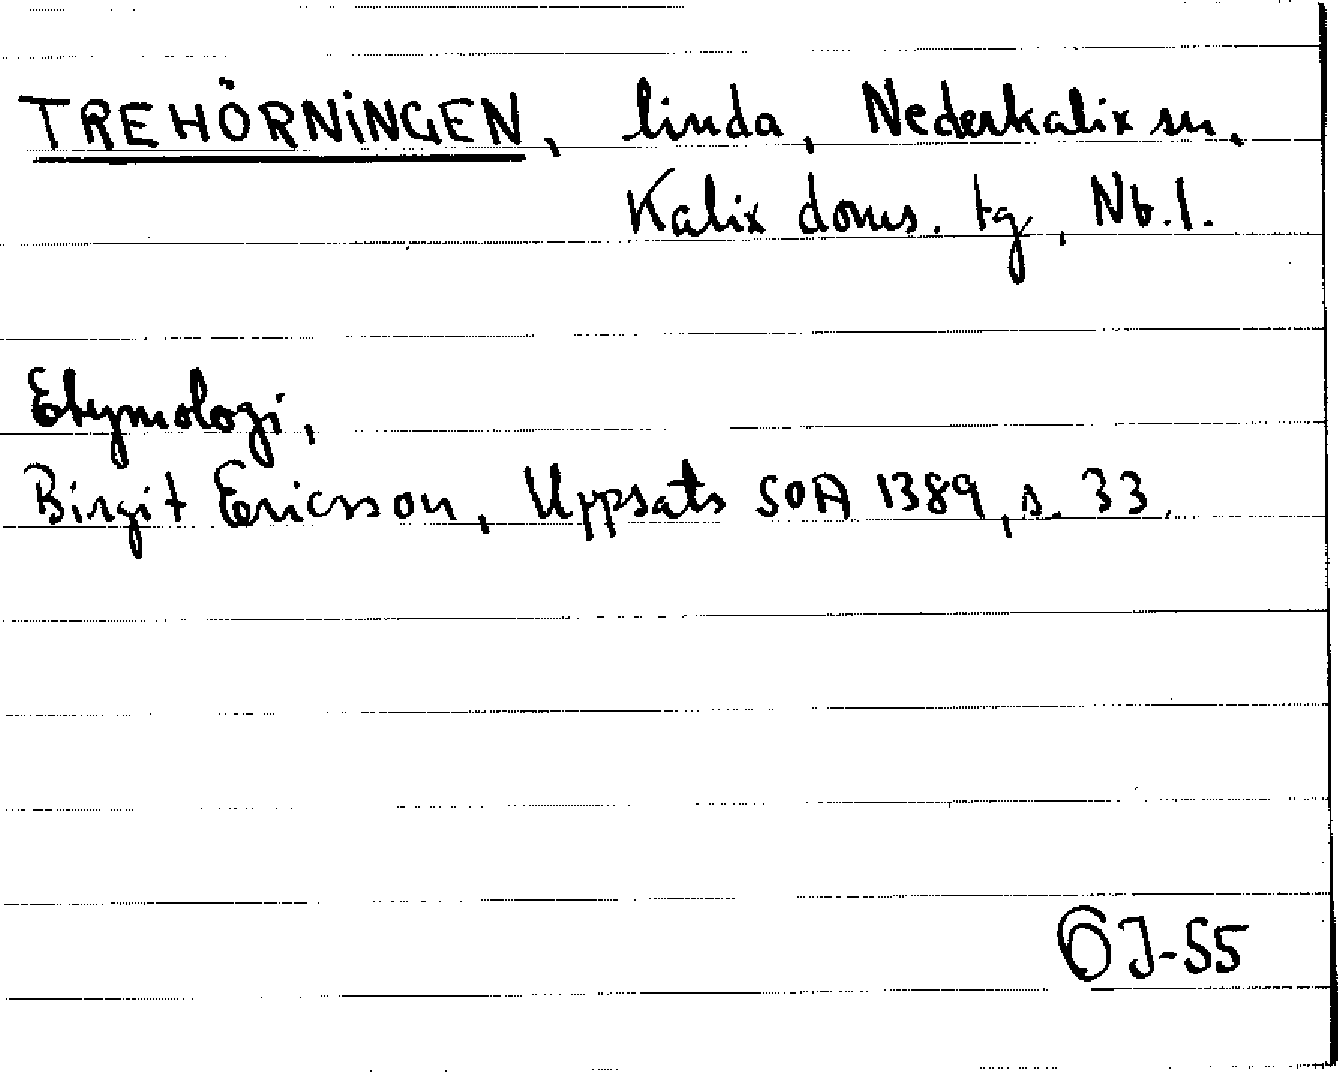 TREHÖRNINGEN, linda, Nederkalix sn.
Kalix doms. tg, Nb. l.
Etymologi,
Birgit Ericsson, Uppsats SOA 1389, s. 33.
GJ-55